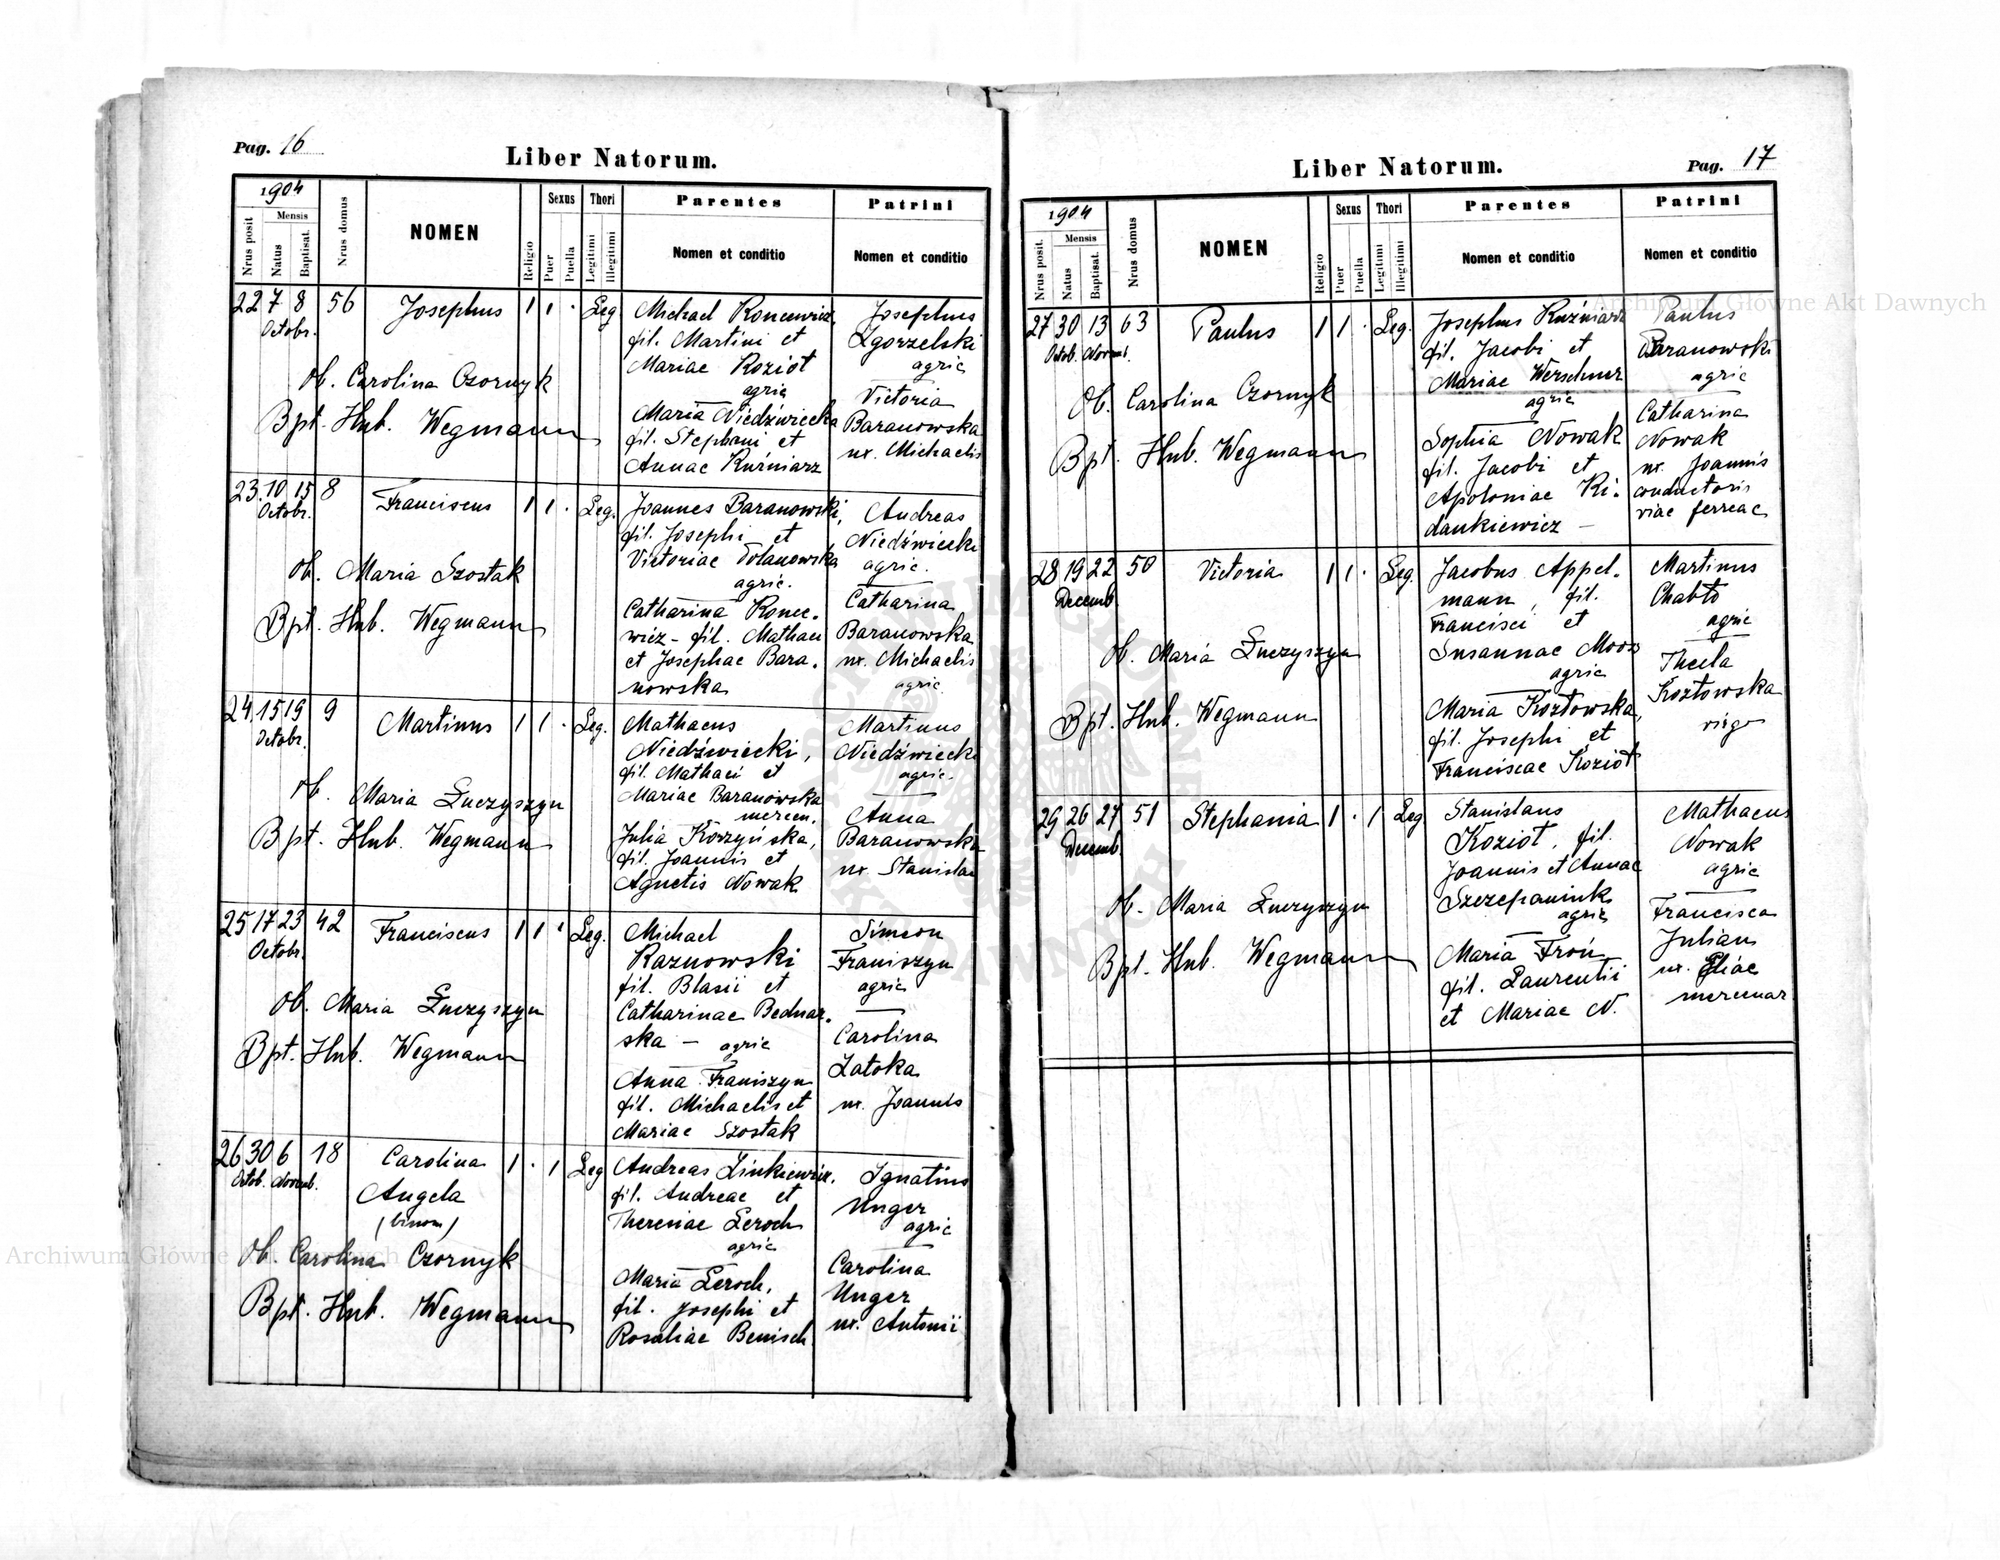 Pag. 16
Liber Natorum.
1904
Nrus posit
Mensis
Natus
Baptisat.
Nrus domus
NOMEN
Religio
Sexus
Puer
Puella
Thori
Legitimi
Illegitimi
Parentes
Nomen et conditio
Patrini
Nomen et conditio
22 7 8 56 Josephus 1 1 · Leg.
Octobr.
Ob. Carolina Czornyk
Bpt. Hub. Wegmann
Michael Koncewicz,
fil. Martini et
Mariae Kozioł
agric
Maria Niedźwiecka
fil. Stephani et
Annae Kuźniarz
Josephus
Zgorzelski
agric
Victoria
Baranowska
ux. Michaelis
23. 10 15 8 Franciscus 1 1 · Leg.
Octobr.
Ob. Maria Szostak
Bpt. Hub. Wegmann
Joannes Baranowski,
fil. Josephi et
Victoriae Dolanowska
agric.
Catharina Konce-
wicz - fil. Mathaei
et Josephae Bara-
nowska
Andreas
Niedźwiecki
agric.
Catharina
Baranowska
ux. Michaelis
agric.
24. 15 19 9 Martinus 1 1 · Leg.
Octobr.
Ob. Maria Łuczyszyn
Bpt. Hub. Wegmann
Mathaeus
Niedźwiecki,
fil. Mathaei et
Mariae Baranowska
mercen.
Julia Korzyńska,
fil. Joannis et
Agnetis Nowak
Martinus
Niedźwiecki
agric.
Anna
Baranowska
ux. Stanislai
25 17 23 42 Franciscus 1 1 · Leg.
Octobr.
Ob. Maria Łuczyszyn
Bpt. Hub. Wegmann
Michael
Raznowski
fil. Blasii et
Catharinae Bednar-
ska — agric
Anna Franiszyn
fil. Michaelis et
Mariae Szostak
Simeon
Franiszyn
agric
Carolina
Latoka
ux. Joannis
26 30 6 18 Carolina 1 · 1 Leg
Octob. Novemb.
Angela
(binom)
Ob. Carolina Czornyk
Bpt. Hub. Wegmann
Andreas Linkiewicz,
fil. Andreae et
Theresiae Leroch
agric
Maria Leroch,
fil. Josephi et
Rosaliae Benisch
Ignatius
Unger
agric
Carolina
Unger
ux. Antonii
Liber Natorum.
Pag. 17
1904
Nrus posit.
Mensis
Natus
Baptisat.
Nrus domus
NOMEN
Religio
Sexus
Puer
Puella
Thori
Legitimi
Illegitimi
Parentes
Nomen et conditio
Patrini
Nomen et conditio
27 30 13 63 Paulus 1 1 · Leg.
Octob. Novemb.
Ob. Carolina Czornyk
Bpt. Hub. Wegmann
Josephus Kuźniarz
fil. Jacobi et
Mariae Werschner
agric
Sophia Nowak
fil. Jacobi et
Apoloniae Ki-
dankiewicz —
Paulus
Baranowski
agric
Catharina
Nowak
ux. Joannis
conductoris
viae ferreae
28 19 22 50 Victoria 1 1 · Leg.
Decemb
Ob. Maria Łuczyszyn
Bpt. Hub. Wegmann
Jacobus Appel-
mann, fil.
Francisci et
Susannae Moos
agric
Maria Kozłowska,
fil. Josephi et
Franciscae Kozioł
Martinus
Chabło
agric
Thecla
Kozłowska
virgo
29 26 27 51 Stephania 1 · 1 Leg
Decemb.
Ob. Maria Łuczyszyn
Bpt. Hub. Wegmann
Stanislaus
Kozioł, fil.
Joannis et Annae
Szczepaniuk
agric
Maria Froń
fil. Laurentii
et Mariae N.
Mathaeus
Nowak
agric
Francisca
Julian
ux. Eliae
mercenar.
Archiwum Główne Akt Dawnych
Archiwum Główne Akt Dawnych